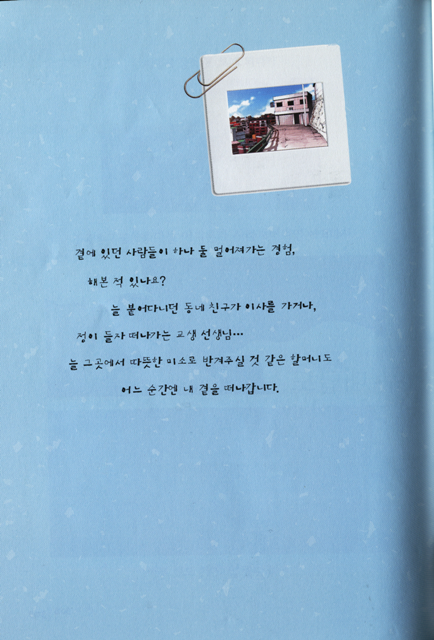 곁에 있던 사람들이 하나 둘 멀어져가는 경험,
해본 적 있나요?
늘 붙어다니던 동네 친구가 이사를 가거나,
정이 들자 떠나가는 교생 선생님...
늘 그곳에서 따뜻한 미소로 반겨주실 것 같은 할머니도
어느 순간엔 내 곁을 떠나갑니다.